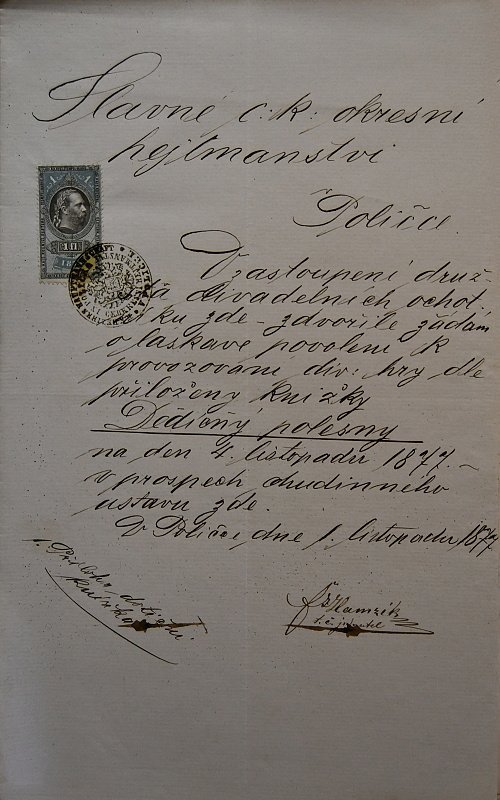 Slavné c: k: okresní
hejtmanství
Poličce.
V zastoupení druž-
divadelních ochot
níků zde - zdvořile žádám
o laskavé povolení k
provozování div: hry dle
přiložený knížky
Dědičný polesný
na den 4. listopadu 1877. -
v prospěch chudinného
ústavu zde.
V Poličce, dne 1. listopadu 1877
1. Příloha
knížka